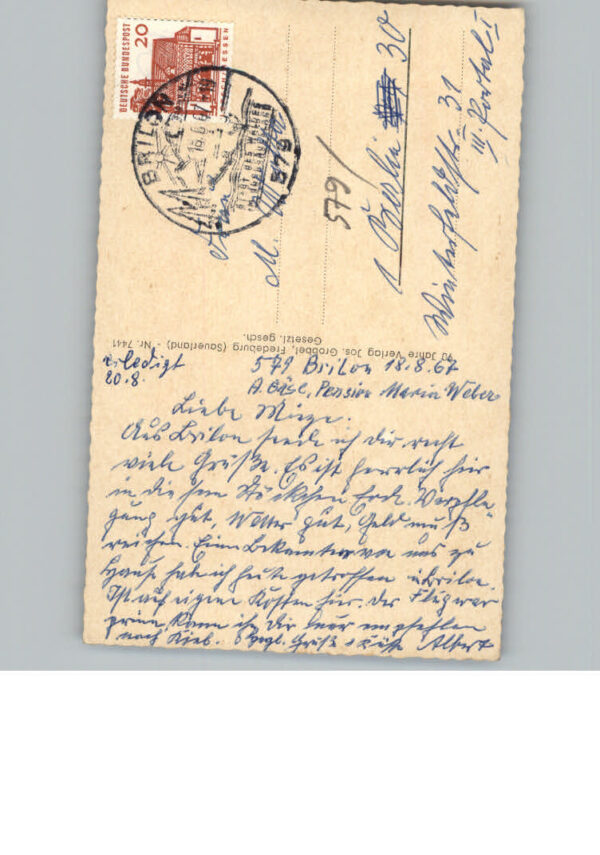 DEUTSCHE BUNDESPOST
20
HESSEN
BRILON
579
579
1 Berlin 30
Winterfeldtstr. 31
III. Portal I
90 Jahre Verlag Jos. Grobbel, Fredeburg (Sauerland) - Nr. 7441
Gesetzl. gesch.
erledigt
20.8.
579 Brilon 18.8.67
A. Gäsl, Pension Maria Weber
Liebe Mieze.
Aus Brilon sende ich dir recht
viele Grüße. Es ist herrlich hier
in diesem Stückchen Erde. Verpfle-
gung gut, Wetter gut, Geld muß
reichen. Einen Bekannten von uns zu
Hause habe ich heute getroffen
Ist auf eigene Kosten hier. Der Flug war
prima, kann ich dir nur empfehlen
Grüße Albert